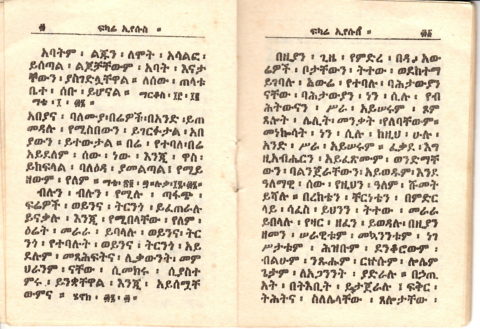 ፍካሬ ኢየሱስ ።
አባትም ፡ ልጁን ፡ ለሞት ፡ አሳልፎ ፡
ይሰጣል ፡ ልጆቻቸውም ፡ አባት ፡ እናታ
ቸውን ፡ ያስገድሏቸዋል ። ለሰው ፡ ጠላቱ
ቤተ ፡ ሰቡ ፡ ይሆናል ።
አበያና ፡ ባለሙያ ፡ በሬዎች ፡ በአንድ ፡ ይጠ
መዳሉ ፡ የሚስበውን ፡ ይገርፉታል ፡ አበ
ያውን ፡ ይተውታል ። በሬ ፡ የተባለ ፡ በሬ
አይደለም ፡ ሰው ፡ ነው ፡ እንጂ ፡ ዋስ ፡
ይከፍላል ፡ ባለዕዳ ፡ ያመልጣል ፡ የሚይ
ዘውም ፡ የለም ።
ብሉን ፡ ብሉን ፡ የሚሉ ፡ ጣፋጭ ፡
ፍሬዎች ፡ ወይንና ፡ ትርንጎ ፡ ይፈጠራሉ
ይናቃሉ ፡ እንጂ ፡ የሚበላቸው ፡ የለም ፡
ዕሬት ፡ መራራ ፡ ይባላሉ ፡ ወይንና ፡ ትር
ንጎ ፡ የተባሉት ፡ ወይንና ፡ ትርንጎ ፡ አይ
ደሉም ፡ መጻሕፍትና ፡ ሊቃውንት ፡ መም
ህራንም ፡ ናቸው ፡ ሲመክሩ ፡ ሲያስተ
ምሩ ፡ ይንቋቸዋል ፡ እንጂ ፡ አይሰሟቸ
ውምና ።
ፍካሬ ኢየሱስ ።
በዚያን ፡ ጊዜ ፡ የምድረ ፡ በዳ ፡ አው
ሬዎች ፡ ቦታቸውን ፡ ትተው ፡ ወደከተማ
ይገባሉ ፡ አውሬ ፡ የተባሉ ፡ ባሕታውያን
ናቸው ፡ ባሕታውያን ፡ ነን ፡ ሲሉ ፡ የብ
ሕትውናን ፡ ሥራ ፡ አይሠሩም ፡ ጾም
ጸሎት ፡ ሌሊት ፡ መንቃት ፡ የለባቸውም ።
መነኰሳት ፡ ነን ፡ ሲሉ ፡ ከዚህ ፡ ሁሉ ፡
አንድ ፡ ሥራ ፡ አይሠሩም ። ፈቃደ ፡ እግ
ዚአብሔርን ፡ አይፈጽሙም ፡ ወንድማቸ
ውን ፡ ባልንጀራቸውን ፡ አይወዱም ፡ እንደ
ዓለማዊ ፡ ሰው ፡ የዚህን ፡ ዓለም ፡ ሹመት
ይሻሉ ። በረከቱን ፡ ቸርነቱን ፡ በምድር
ላይ ፡ ሳፈስ ፡ ይህንን ፡ ትተው ፡ መራራ
ይበላሉ ፡ የዛር ፡ ዘፈን ፡ ይወዳሉ ፡ በዚያን
ዘመን ፡ ሠራዊቱም ፡ መኳንንቱም ፡ ነገ
ሥታቱም ፡ ሕዝቡም ፡ ደንቆሮውም ፡
ብልሁም ፡ ንጹሑም ፡ ርኩሱም ፡ ሎሌም
ጌታም ፡ ለአጋንንት ፡ ያድራሉ ። በኃጢ
አት ፡ በትእቢት ፡ ይታጀራሉ ፡ ፍቅር ፡
ትሕትና ፡ ስለሌላቸው ፡ ጸሎታቸው ፡